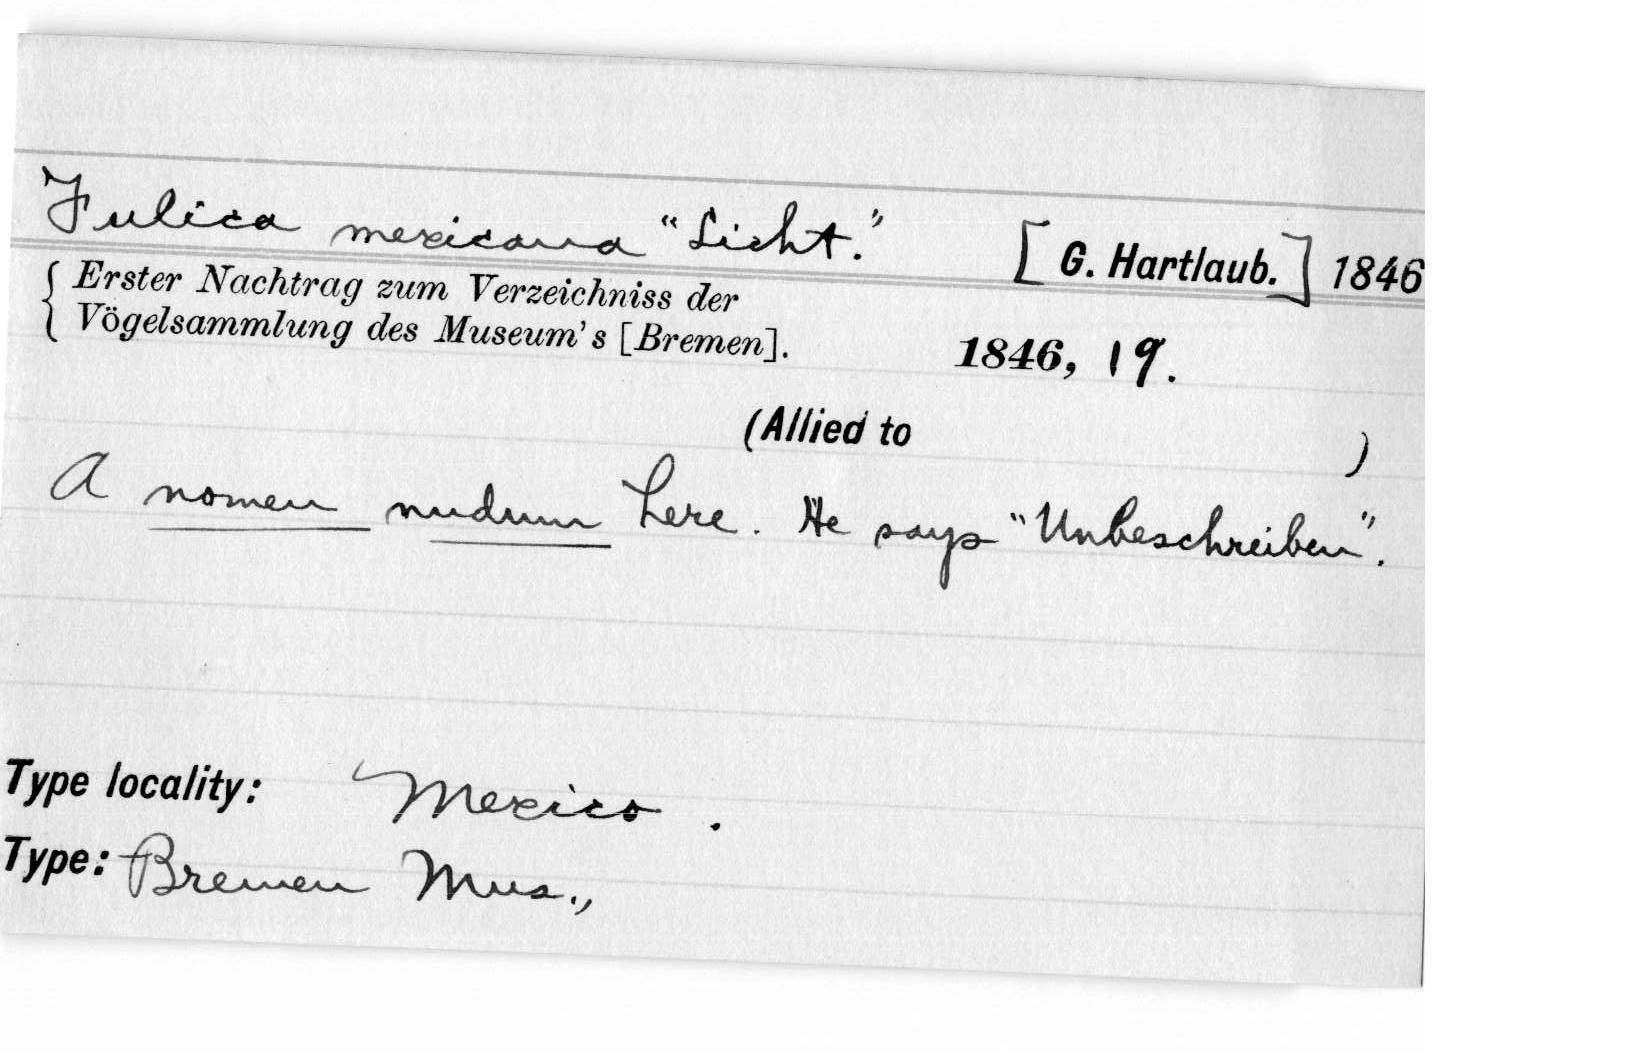 Fulica mexicana "Licht." [G. Hartlaub.] 1846
{ Erster Nachtrag zum Verzeichniss der
Vögelsammlung des Museum's [Bremen]. 1846, 19.
(Allied to )
A nomen nudum here. He says "Unbeschreiben".
Type locality: Mexico.
Type: Bremen Mus.,